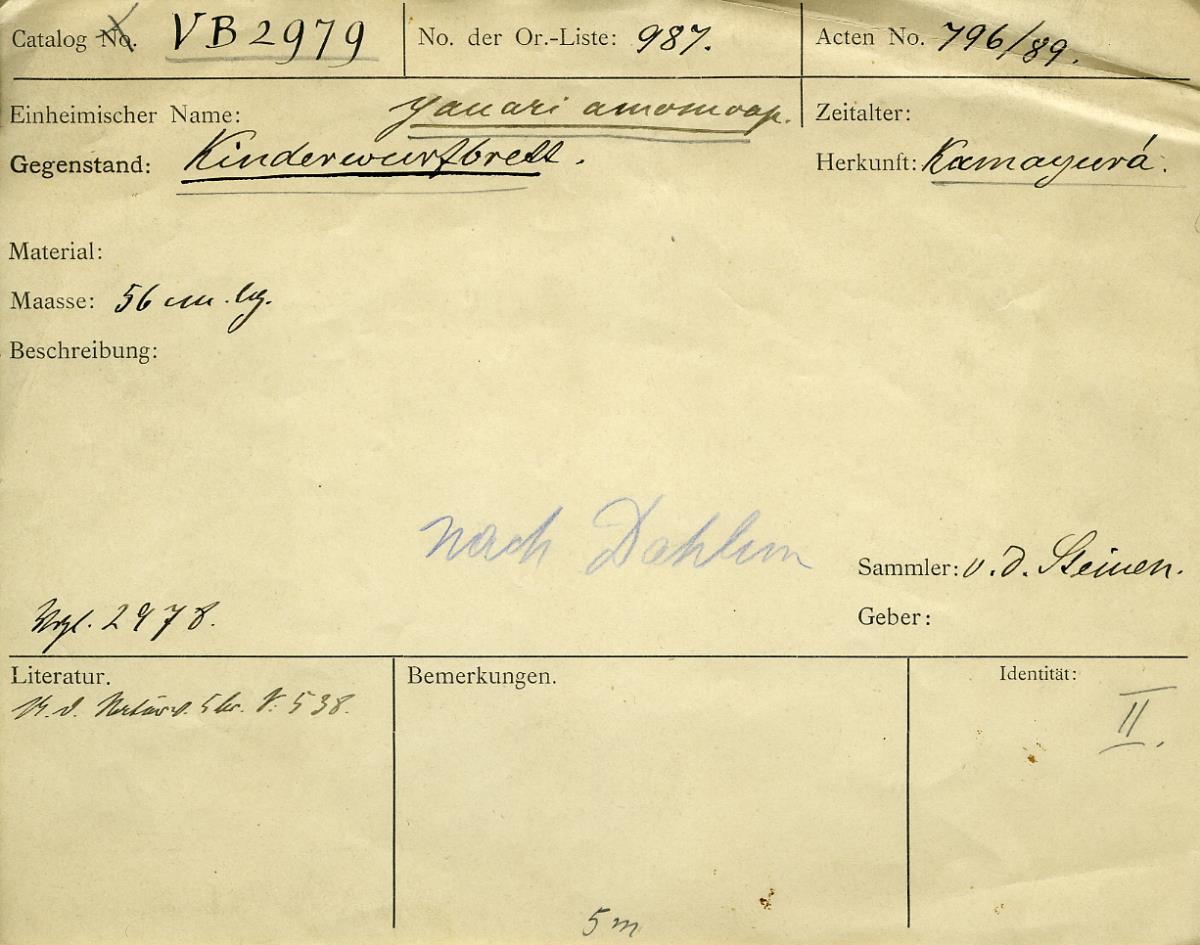 Catalog No. VB 2979
No. der Or.-Liste: 987.
Acten No. 796/89.
Einheimischer Name: yauari amomoap.
Zeitalter:
Gegenstand: Kinderwurfbrett.
Herkunft: Kamayurá.
Material:
Maasse: 56 cm. lg.
Beschreibung:
nach Dahlem
Sammler: v. d. Steinen.
Geber:
Vrgl. 2978.
Literatur.
Bemerkungen.
Identität:
538.
II.
5 m